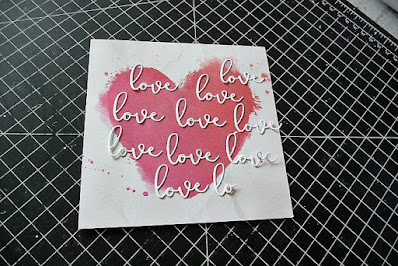 love love
love
love love love
love love love
love lo